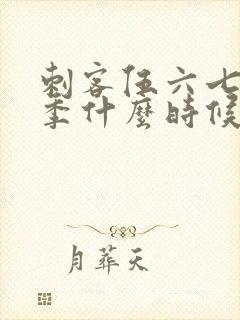 刺客伍六七
季什麼時候
月葬天